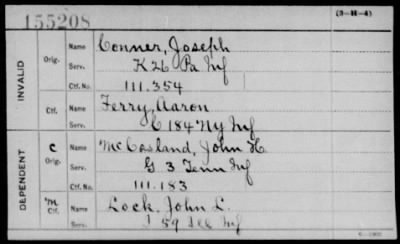 155208
(3-H-4)
INVALID
Orig.
Name Conner, Joseph
Serv. K 26 Pa Inf
Ctf. No. 111.354
Ctf.
Name Ferry, Aaron
Serv. C 184 Ny Inf
DEPENDENT
C
Orig.
Name McCasland, John H
Serv. G 3 Tenn Inf
Ctf. No. 111.183
"M
Ctf.
Name Lock, John L.
Serv. I 59 Ill Inf